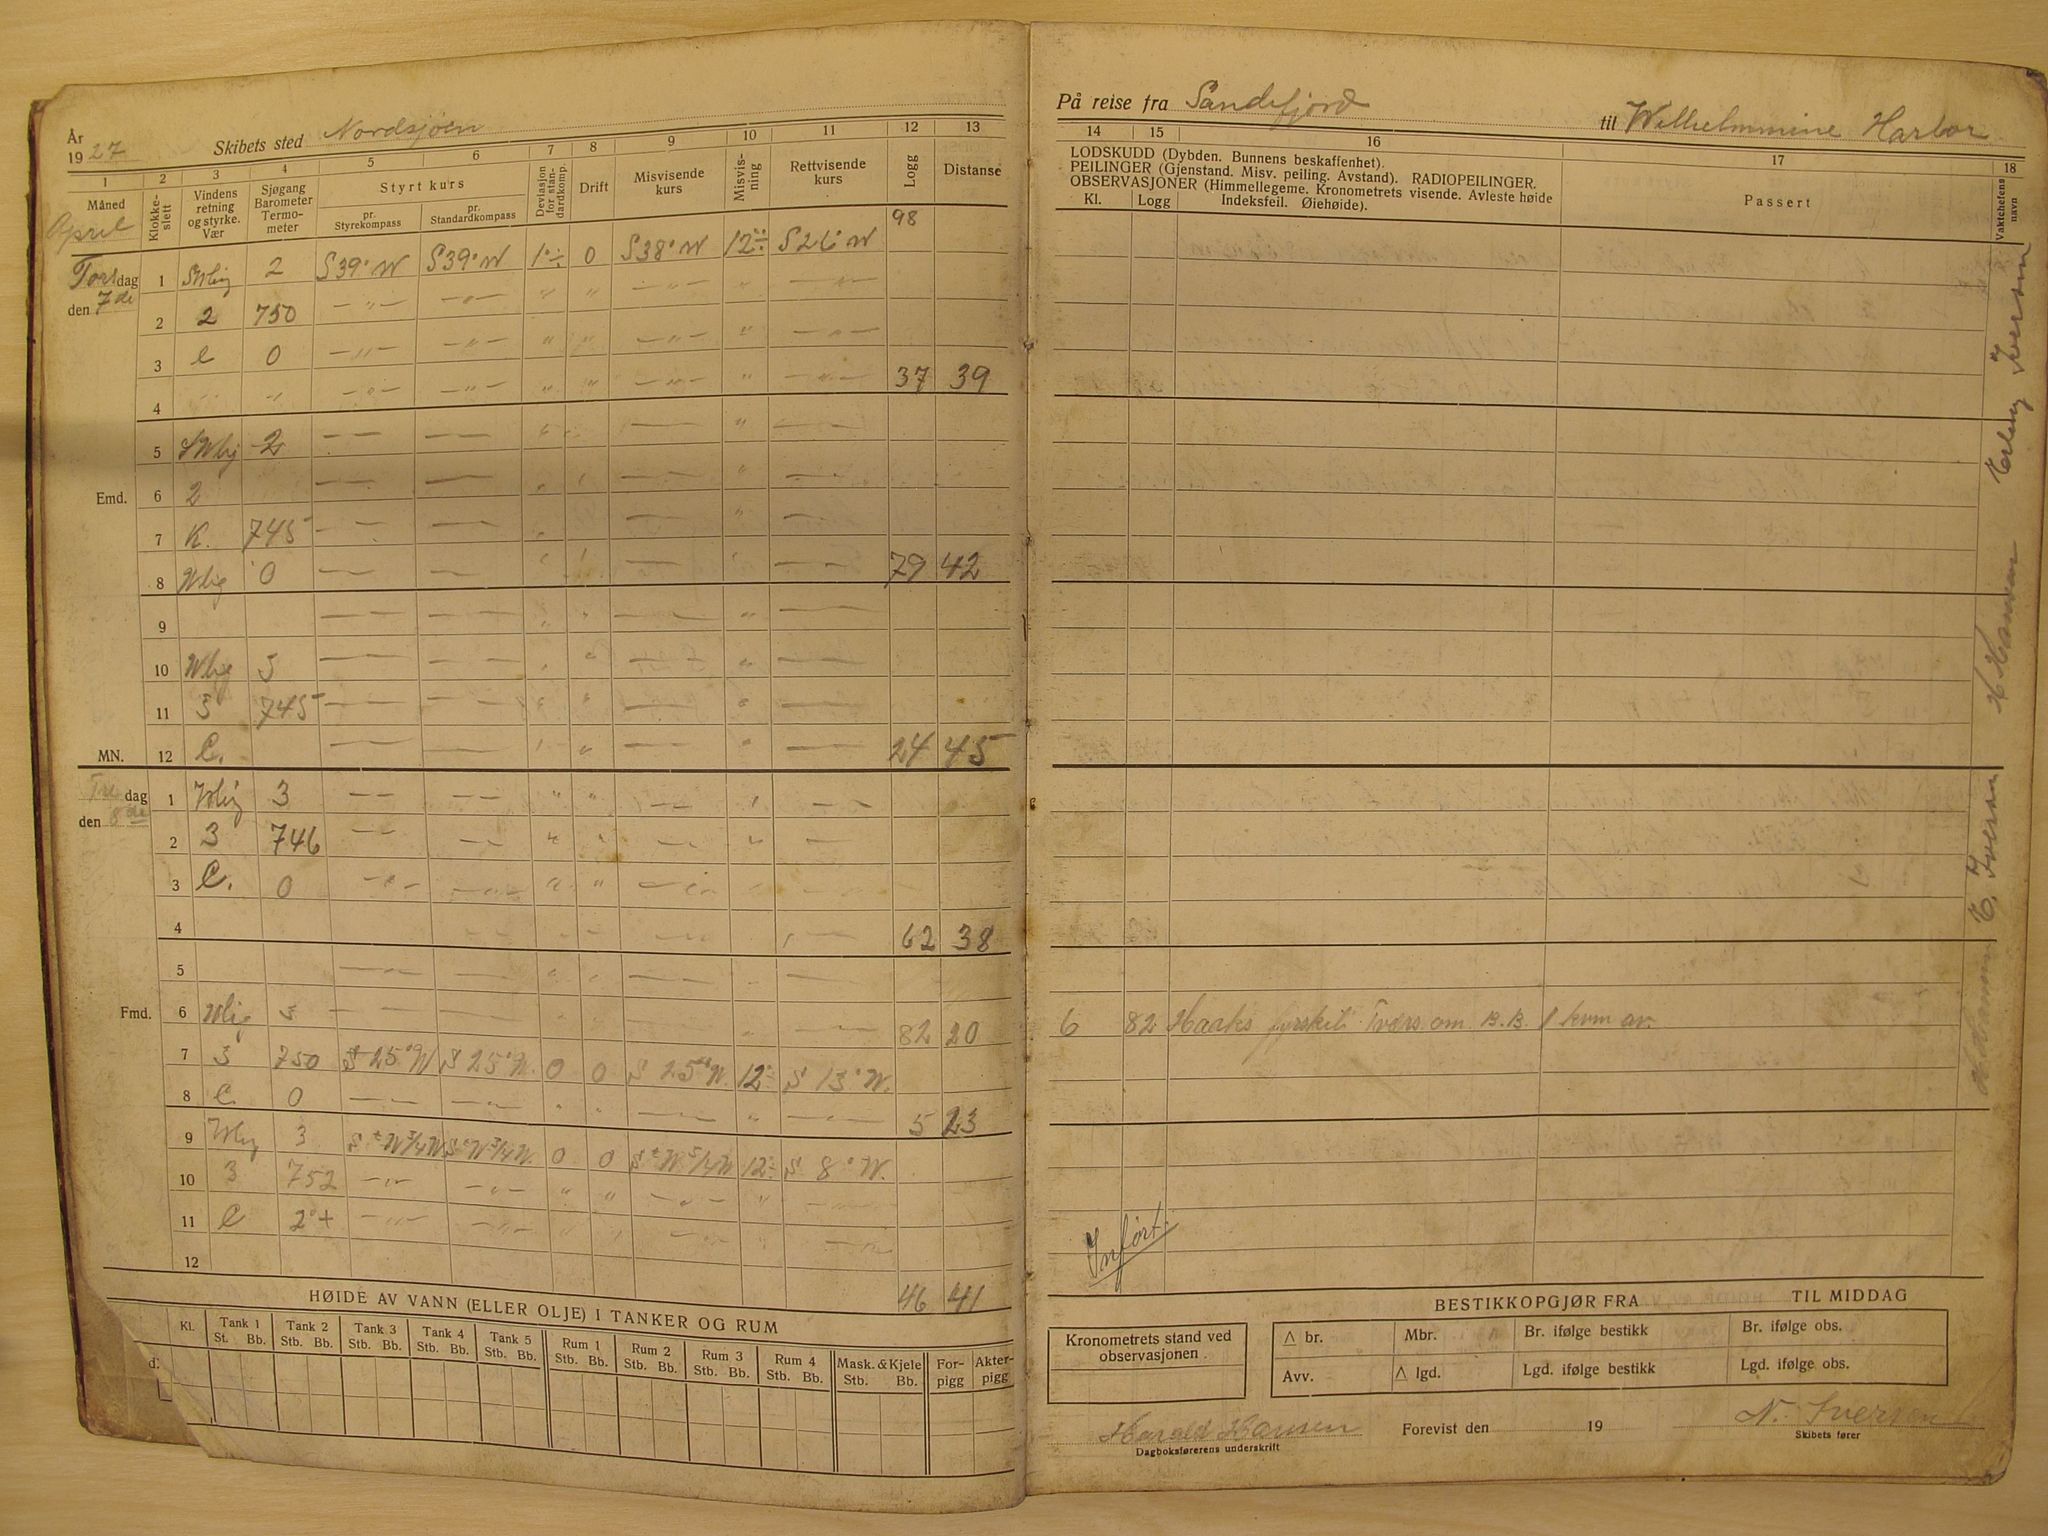 År
1927
Skibets sted Nordsjøen
1 2 3 4 5 6 7 8 9 10 11 12 13
Måned
April
Klokke-
slett
Vindens
retning
og styrke.
Vær
Sjøgang
Barometer
Termo-
meter
Styrt kurs
pr.
Styrekompass
pr.
Standardkompass
Deviasjon
for stan-
dardkomp.
Drift
Misvisende
kurs
Misvis-
ning
Rettvisende
kurs
Logg
Distanse
98
Torsdag
den 7de
1 SWlig 2 S39°W S39°W 1°÷ 0 S38°W 12°÷ S26°W
2 2 750 — " — — " — " " — " — " — " —
3 C 0 — " — — " — " " — " — " — " —
4 — " — — " — " " — " — " — " — 37 39
5 SWlig 2 — — — — " — — " — —
Emd. 6 2 — — — — — — " — —
7 K. 745 — — — — — — " — —
8 Wlig 0 — — — — — — — — 79 42
9 — — — — " " — — " — —
10 Wlig 3 — — — — " " — — " — —
11 3 745 — — — — " " — — " — —
MN. 12 C. — — — — " " — — " — — 24 45
dag
den 8de
1 Wlig 3 — — — — " " — — " — —
2 3 746 — — — — " " — — " — —
3 C. 0 — " — — " — " " — " — " — " —
4 — — — — — — — — 62 38
5 — — — — " " — — — —
Fmd. 6 Wlig 3 — — — — — — " — — 82 20
7 3 750 S 25°W S 25°W. 0 0 S 25°W. 12°÷ S 13°W.
8 C. 0 — " — — " — " " — " — " — " — 5 23
9 Wlig 3 S t W 3/4 W S t W 3/4 W. 0 0 S t W 3/4 W 12÷ S 8°W.
10 3 752 — " — — " — " " — " — " — " —
11 C 2°+ — " — — " — " " — " — " — " —
12 46 41
HØIDE AV VANN (ELLER OLJE) I TANKER OG RUM
Kl. Tank 1 Tank 2 Tank 3 Tank 4 Tank 5 Rum 1 Rum 2 Rum 3 Rum 4 Mask. & Kjele For-
pigg Akter-
pigg
St. Bb. Stb. Bb. Stb. Bb. Stb. Bb. Stb. Bb. Stb. Bb. Stb. Bb. Stb. Bb. Stb. Bb. Stb. Bb.
På reise fra Sandefjord til Wilhelmmine Harbor
14 15 16 17 18
LODSKUDD (Dybden. Bunnens beskaffenhet).
PEILINGER (Gjenstand. Misv. peiling. Avstand). RADIOPEILINGER.
OBSERVASJONER (Himmellegeme. Kronometrets visende. Avleste høide
Kl. Logg Indeksfeil. Øiehøide).
Passert
Vaktchefens
navn
Erling Iversen
H Hansen
E. Iversen
H Hansen
6 82 Haaks fyrskib Tværs om B.B. 1 kvm av.
Inført.
BESTIKKOPGJØR FRA TIL MIDDAG
Kronometrets stand ved
observasjonen
Λ br. Mbr. Br. ifølge bestikk Br. ifølge obs.
Avv. Λ lgd. Lgd. ifølge bestikk Lgd. ifølge obs.
Harald Hansen
Dagboksførerens underskrift
Forevist den 19
N. Iversen
Skibets fører